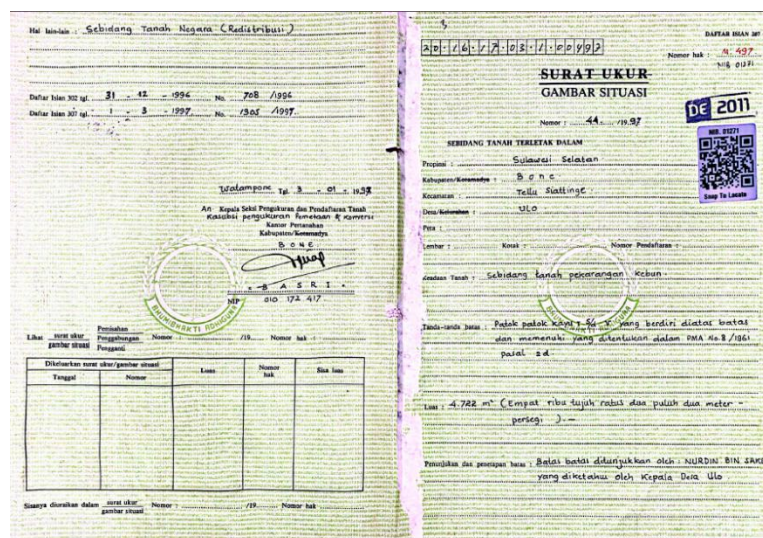 Hal lain-lain : Sebidang Tanah Negara (Redistribusi)
Daftar Isian 302 tgl. 31 - 12 - 1996 No. 708 /1996
Daftar Isian 307 tgl. 1 - 3 - 1997 No. 1305 /1997.
Watampone Tgl 3 - 01 - 1997
An. Kepala Seksi Pengukuran dan Pendaftaran Tanah
Kasubsi pengukuran Pemetaan & Konversi
Kantor Pertanahan
Kabupaten/Kotamadya
BONE
- BASRI -
NIP 010 172 417
BHUMIBHAKTI ADHIGUNA
Lihat surat ukur / gambar situasi Pemisahan / Penggabungan / Pengganti Nomor : /19 Nomor hak :
Dikeluarkan surat ukur/gambar situasi
Tanggal Nomor Luas Nomor hak Sisa luas
Sisanya diuraikan dalam surat ukur / gambar situasi Nomor : /19 Nomor hak
DAFTAR ISIAN 207
20-16-17-03-1-00497
Nomor hak : M. 497
NIB 01271
SURAT UKUR
GAMBAR SITUASI
Nomor : 44 /1997
DE 2011
NIB. 01271
Snap To Locate
SEBIDANG TANAH TERLETAK DALAM
Propinsi : Sulawesi Selatan
Kabupaten/Kotamadya : Bone
Kecamatan : Tellu Siattinge
Desa/Kelurahan : ULO
Peta :
Lembar : Kotak : Nomor Pendaftaran :
Keadaan Tanah : Sebidang tanah pekarangan Kebun.
Tanda-tanda batas : Patok patok Kayu yang berdiri diatas batas
dan memenuhi yang ditentukan dalam PMA No.8/1961
pasal 2d
Luas : 4.722 m² (Empat ribu tujuh ratus dua puluh dua meter -
persegi ).-
Penunjukan dan penetapan batas : Batas batas ditunjukkan oleh : NURDIN BIN
yang diketahui oleh Kepala Desa Ulo